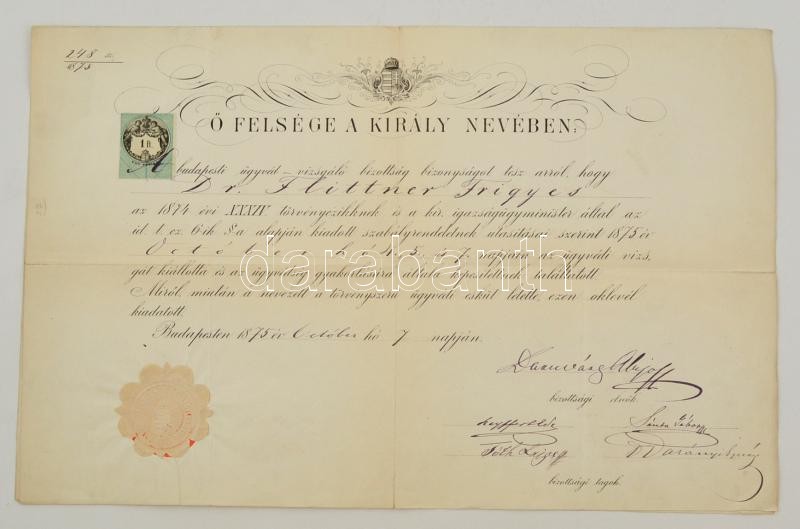 248
1875
Ő FELSÉGE A KIRÁLY NEVÉBEN,
1 ft.
A budapesti ügyvéd-vizsgáló bizottság bizonyságot tesz arról, hogy
Dr. Flittner Frigyes
az 1874 évi XXXIV törvényczikknek és a kir. igazságügyminister által az
id. t. cz. 6-ik §-a alapján kiadott szabályrendeletnek utasításai szerint 1875 év
October hó 4. 5. 7. napján az ügyvédi vizs,
gát kiállotta és az ügyvédség gyakorlására általa képesítettnek találtatott.
Miről, miután a nevezett a törvényszerű ügyvédi esküt letette, ezen oklevél
kiadatott.
Budapesten 1875 év October hó 7 napján.
darabanth
Daruváry Alajos
bizottsági elnök.
Tóth Lőrincz
Darányi Ignácz
bizottsági tagok.